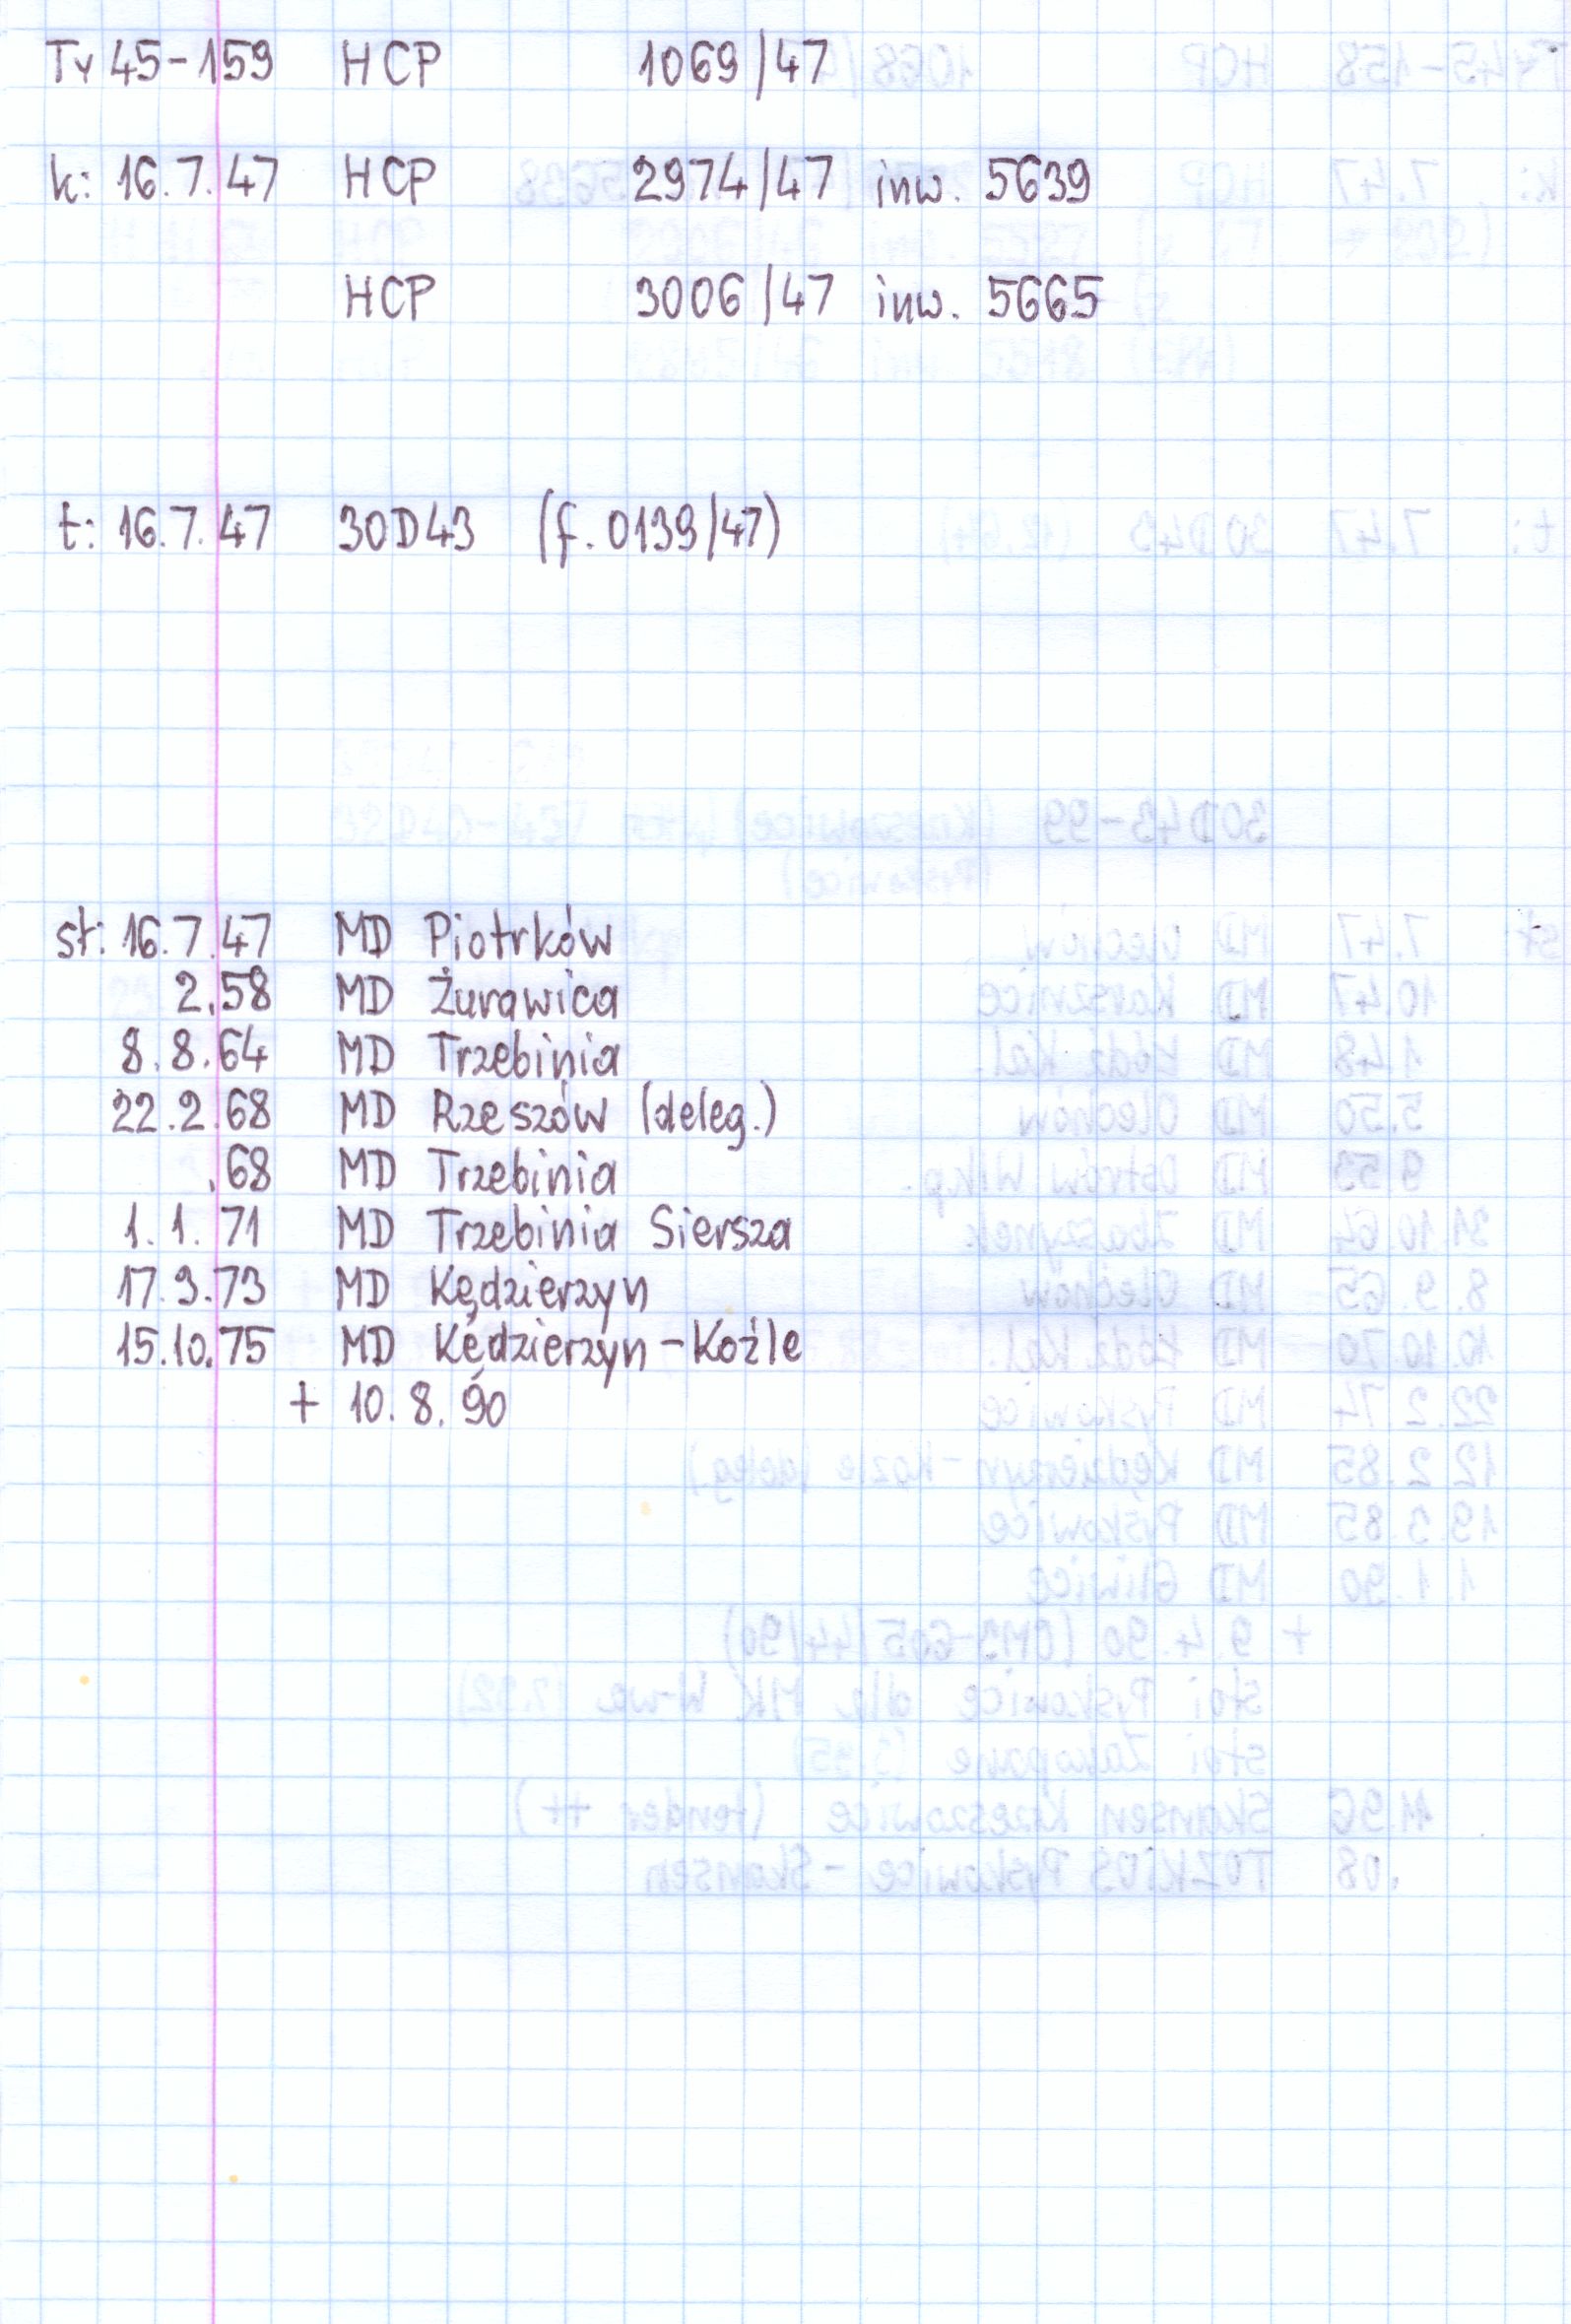 Ty 45-159 HCP 1069/47
k: 16.7.47 HCP 2974/47 inw. 5639
HCP 3006/47 inw. 5665
t: 16.7.47 30D43 (f. 0139/47)
st: 16.7.47 MD Piotrków
2.58 MD Żurawica
8.8.64 MD Trzebinia
22.2.68 MD Rzeszów (deleg.)
.68 MD Trzebinia
1.1.71 MD Trzebinia Siersza
17.3.73 MD Kędzierzyn
15.10.75 MD Kędzierzyn-Koźle
+ 10.8.90